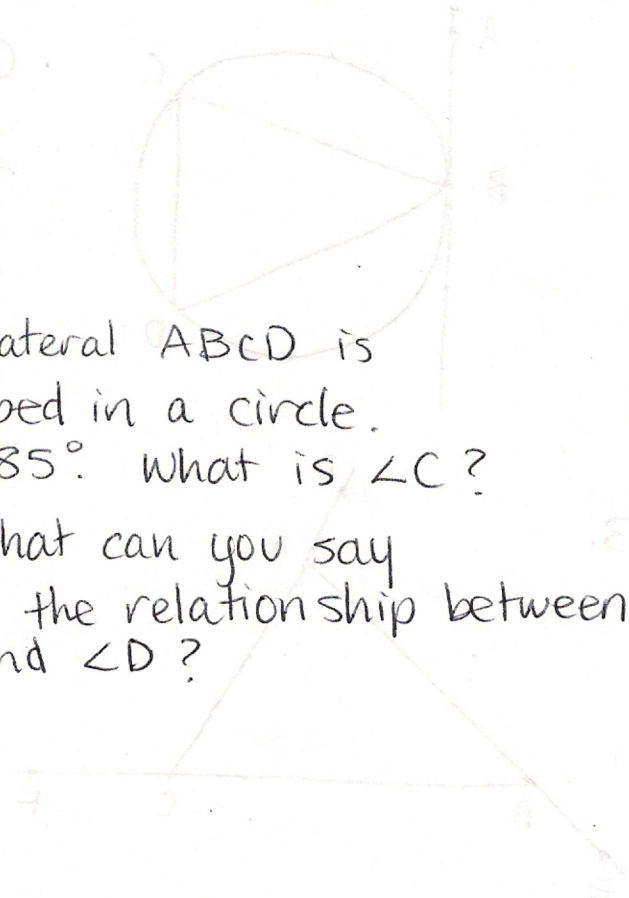 ateral ABCD is
bed in a circle.
85°. What is ∠C?
hat can you say
the relationship between
nd ∠D?